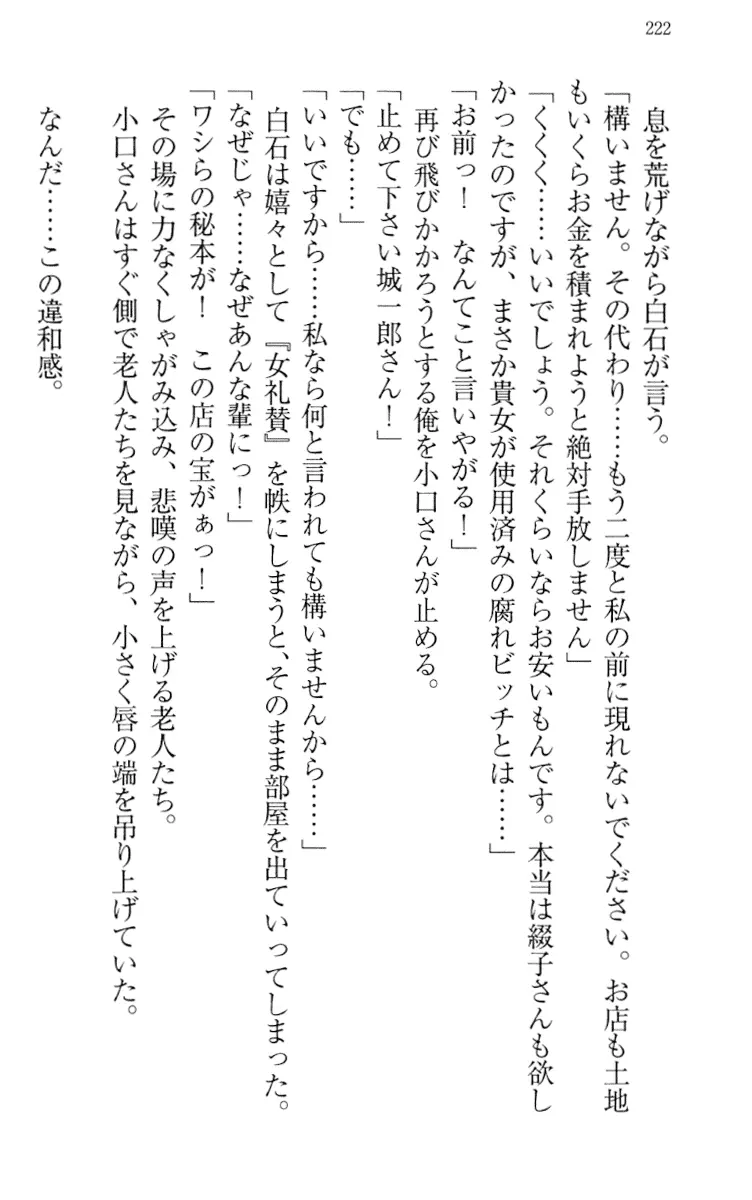 222
息を荒げながら白石が言う。
「構いません。その代わり……もう二度と私の前に現れないでください。お店も土地
もいくらお金を積まれようと絶対手放しません」
「くくく……いいでしょう。それくらいならお安いもんです。本当は綴子さんも欲し
かったのですが、まさか貴女が使用済みの腐れビッチとは……」
「お前っ！　なんてこと言いやがる！」
再び飛びかかろうとする俺を小口さんが止める。
「止めて下さい城一郎さん！」
「でも……」
「いいですから……私なら何と言われても構いませんから……」
白石は嬉々として『女礼賛』を帙にしまうと、そのまま部屋を出ていってしまった。
「なぜじゃ……なぜあんな輩にっ！」
「ワシらの秘本が！　この店の宝がぁっ！」
その場に力なくしゃがみ込み、悲嘆の声を上げる老人たち。
小口さんはすぐ側で老人たちを見ながら、小さく唇の端を吊り上げていた。
なんだ……この違和感。